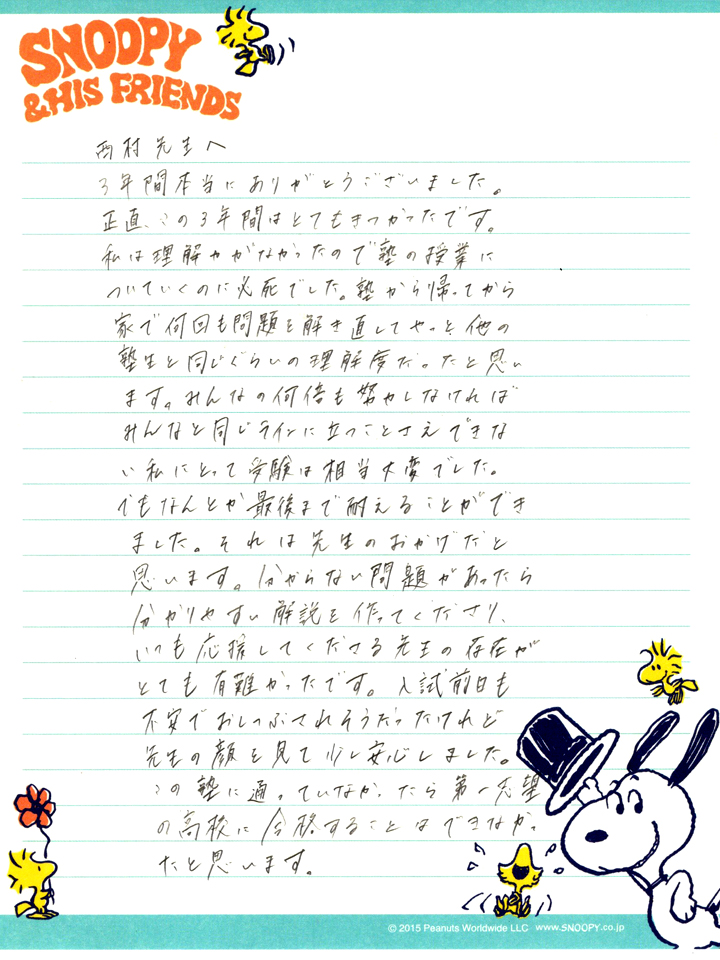 SNOOPY
&HIS FRIENDS
西村先生へ
3年間本当にありがとうございました。
正直、この3年間はとてもきつかったです。
私は理解力がなかったので塾の授業に
ついていくのに必死でした。塾から帰ってから
家で何回も問題を解き直してやっと他の
塾生と同じぐらいの理解度だったと思い
ます。みんなの何倍も努力しなければ
みんなと同じラインに立つことさえできな
い私にとって受験は相当大変でした。
でもなんとか最後まで耐えることができ
ました。それは先生のおかげだと
思います。分からない問題があったら
分かりやすい解説を作ってくださり、
いつも応援してくださる先生の存在が
とても有難かったです。入試前日も
不安でおしつぶされそうだったけれど
先生の顔を見て少し安心しました。
この塾に通っていなかったら第一志望
の高校に合格することはできなかっ
たと思います。
© 2015 Peanuts Worldwide LLC www.SNOOPY.co.jp